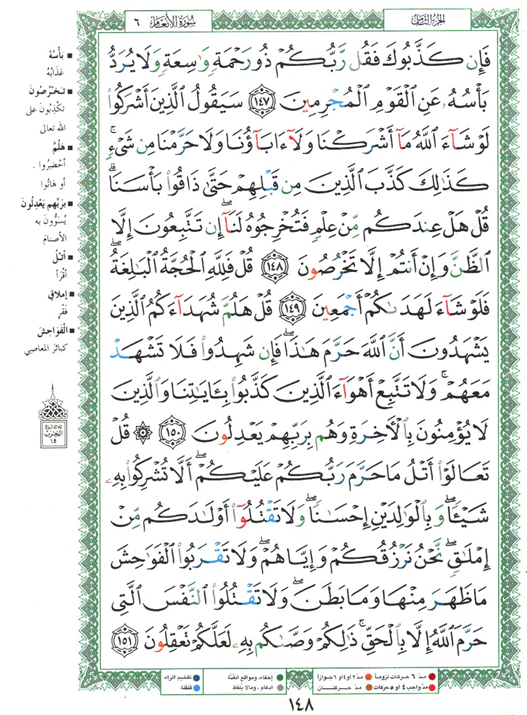 الجزء الثامن
سورة الأنعام ٦
فَإِن كَذَّبُوكَ فَقُل رَّبُّكُمْ ذُو رَحْمَةٍ وَٰسِعَةٍ وَلَا يُرَدُّ
بَأْسُهُۥ عَنِ ٱلْقَوْمِ ٱلْمُجْرِمِينَ ١٤٧ سَيَقُولُ ٱلَّذِينَ أَشْرَكُوا۟
لَوْ شَآءَ ٱللَّهُ مَآ أَشْرَكْنَا وَلَآ ءَابَآؤُنَا وَلَا حَرَّمْنَا مِن شَىْءٍ ۚ
كَذَٰلِكَ كَذَّبَ ٱلَّذِينَ مِن قَبْلِهِمْ حَتَّىٰ ذَاقُوا۟ بَأْسَنَا ۗ
قُلْ هَلْ عِندَكُم مِّنْ عِلْمٍ فَتُخْرِجُوهُ لَنَآ ۖ إِن تَتَّبِعُونَ إِلَّا
ٱلظَّنَّ وَإِنْ أَنتُمْ إِلَّا تَخْرُصُونَ ١٤٨ قُلْ فَلِلَّهِ ٱلْحُجَّةُ ٱلْبَٰلِغَةُ ۖ
فَلَوْ شَآءَ لَهَدَىٰكُمْ أَجْمَعِينَ ١٤٩ قُلْ هَلُمَّ شُهَدَآءَكُمُ ٱلَّذِينَ
يَشْهَدُونَ أَنَّ ٱللَّهَ حَرَّمَ هَٰذَا ۖ فَإِن شَهِدُوا۟ فَلَا تَشْهَدْ
مَعَهُمْ ۚ وَلَا تَتَّبِعْ أَهْوَآءَ ٱلَّذِينَ كَذَّبُوا۟ بِـَٔايَٰتِنَا وَٱلَّذِينَ
لَا يُؤْمِنُونَ بِٱلْـَٔاخِرَةِ وَهُم بِرَبِّهِمْ يَعْدِلُونَ ١٥٠ ۞ قُلْ
تَعَالَوْا۟ أَتْلُ مَا حَرَّمَ رَبُّكُمْ عَلَيْكُمْ ۖ أَلَّا تُشْرِكُوا۟ بِهِۦ
شَيْـًٔا ۖ وَبِٱلْوَٰلِدَيْنِ إِحْسَٰنًا ۖ وَلَا تَقْتُلُوٓا۟ أَوْلَٰدَكُم مِّنْ
إِمْلَٰقٍ ۖ نَّحْنُ نَرْزُقُكُمْ وَإِيَّاهُمْ ۖ وَلَا تَقْرَبُوا۟ ٱلْفَوَٰحِشَ
مَا ظَهَرَ مِنْهَا وَمَا بَطَنَ ۖ وَلَا تَقْتُلُوا۟ ٱلنَّفْسَ ٱلَّتِى
حَرَّمَ ٱللَّهُ إِلَّا بِٱلْحَقِّ ۚ ذَٰلِكُمْ وَصَّىٰكُم بِهِۦ لَعَلَّكُمْ تَعْقِلُونَ ١٥١
بَأْسُهُ
عَذَابُهُ
تَخْرُصُونَ
تَكْذِبُونَ على
الله تعالى
هَلُمَّ
أَحْضِرُوا
أو هاتُوا
بِرَبِّهِم يَعْدِلُونَ
يُسَوُّونَ به
الأصنامَ
أَتْلُ
أَقْرَأُ
إملاقٍ
فَقْرٍ
الفَوَاحِشَ
كبائرَ المعاصي
الحزب
١٥
مدّ ٦ حركات لزوماً
مدّ ٢ أو ٤ أو ٦ جوازاً
إخفاء، ومواقع الغُنَّة
تفخيم الراء
مدّ واجب ٤ أو ٥ حركات
مدّ حركتان
ادغام، وما لا يُلفَظ
قلقلة
١٤٨